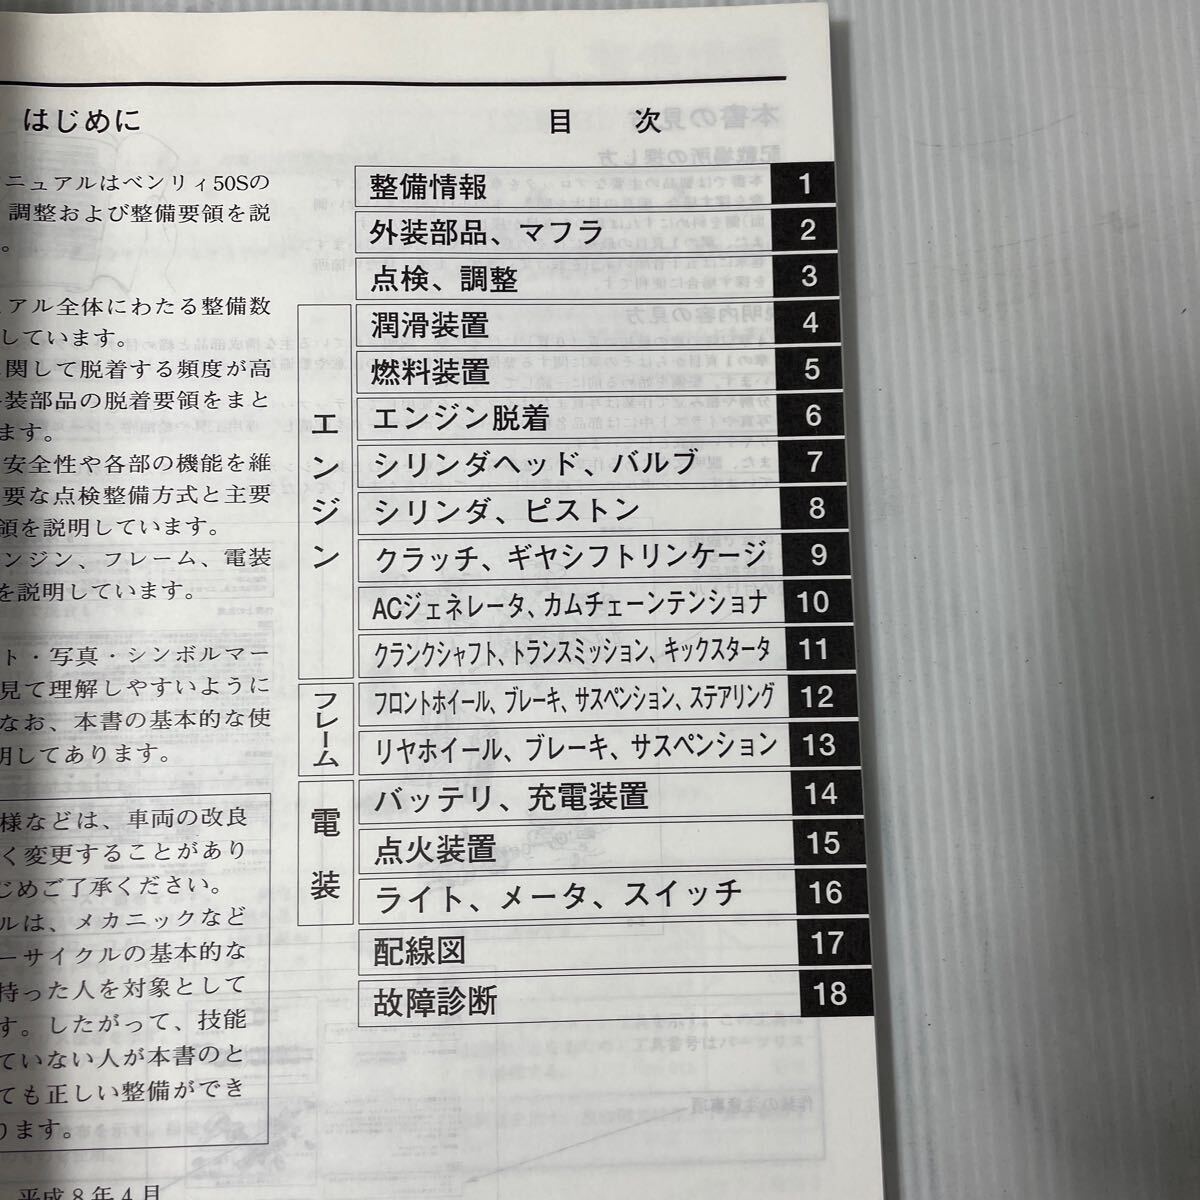 はじめに
ニュアルはベンリィ50Sの
調整および整備要領を説
。
ュアル全体にわたる整備数
しています。
関して脱着する頻度が高
装部品の脱着要領をまと
ます。
安全性や各部の機能を維
要な点検整備方式と主要
領を説明しています。
ンジン、フレーム、電装
を説明しています。
ト・写真・シンボルマー
見て理解しやすいように
なお、本書の基本的な使
明してあります。
様などは、車両の改良
く変更することがあり
じめご了承ください。
ルは、メカニックなど
ーサイクルの基本的な
持った人を対象として
す。したがって、技能
ていない人が本書のと
ても正しい整備ができ
ります。
平成8年4月
目 次
整備情報 1
外装部品、マフラ 2
点検、調整 3
エンジン
潤滑装置 4
燃料装置 5
エンジン脱着 6
シリンダヘッド、バルブ 7
シリンダ、ピストン 8
クラッチ、ギヤシフトリンケージ 9
ACジェネレータ、カムチェーンテンショナ 10
クランクシャフト、トランスミッション、キックスタータ 11
フレーム
フロントホイール、ブレーキ、サスペンション、ステアリング 12
リヤホイール、ブレーキ、サスペンション 13
電装
バッテリ、充電装置 14
点火装置 15
ライト、メータ、スイッチ 16
配線図 17
故障診断 18